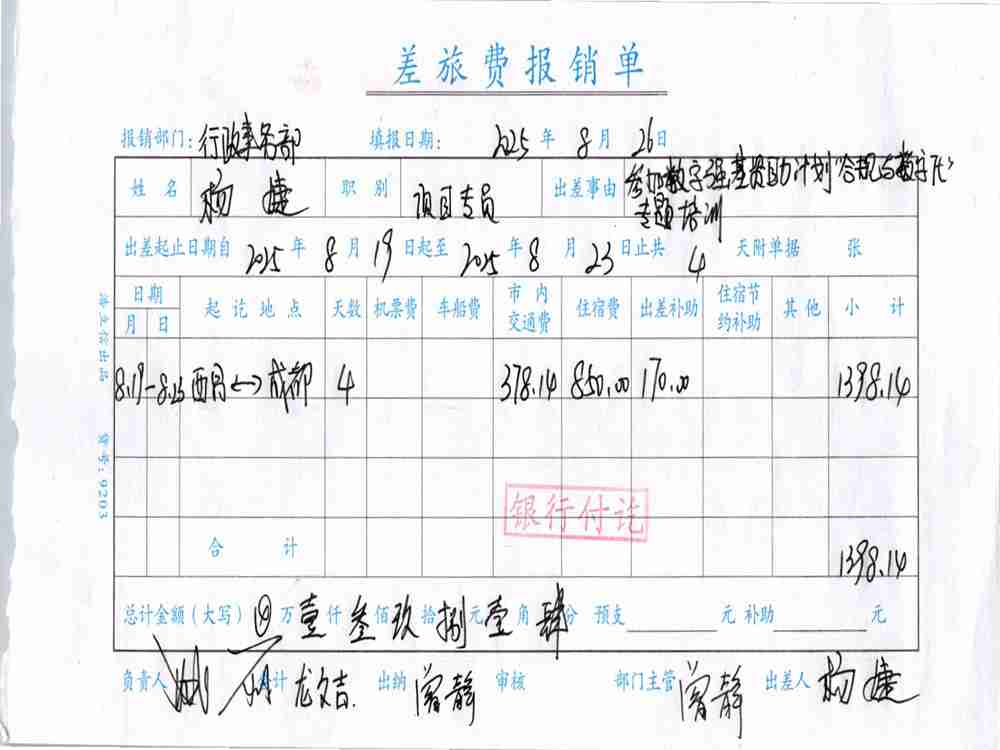 差旅费报销单
报销部门：行政事务部 填报日期： 2025 年 8 月 26 日
姓名 杨捷 职别 项目专员 出差事由 参加数字强基资助计划“合规与数字化”
专题培训
出差起止日期自 2025 年 8 月 19 日起至 2025 年 8 月 23 日止共 4 天附单据 张
日期 起讫地点 天数 机票费 车船费 市内交通费 住宿费 出差补助 住宿节约补助 其他 小计
月 日
8.19-8.23 西昌<->成都 4 378.14 850.00 170.00 1398.14
银行付讫
合计 1398.14
总计金额（大写） ⊗ 万 壹 仟 叁 佰 玖 拾 捌 元 壹 角 肆 分 预支 元 补助 元
负责人 会计 龙文吉 出纳 曾静 审核 部门主管 曾静 出差人 杨捷
货号：9203